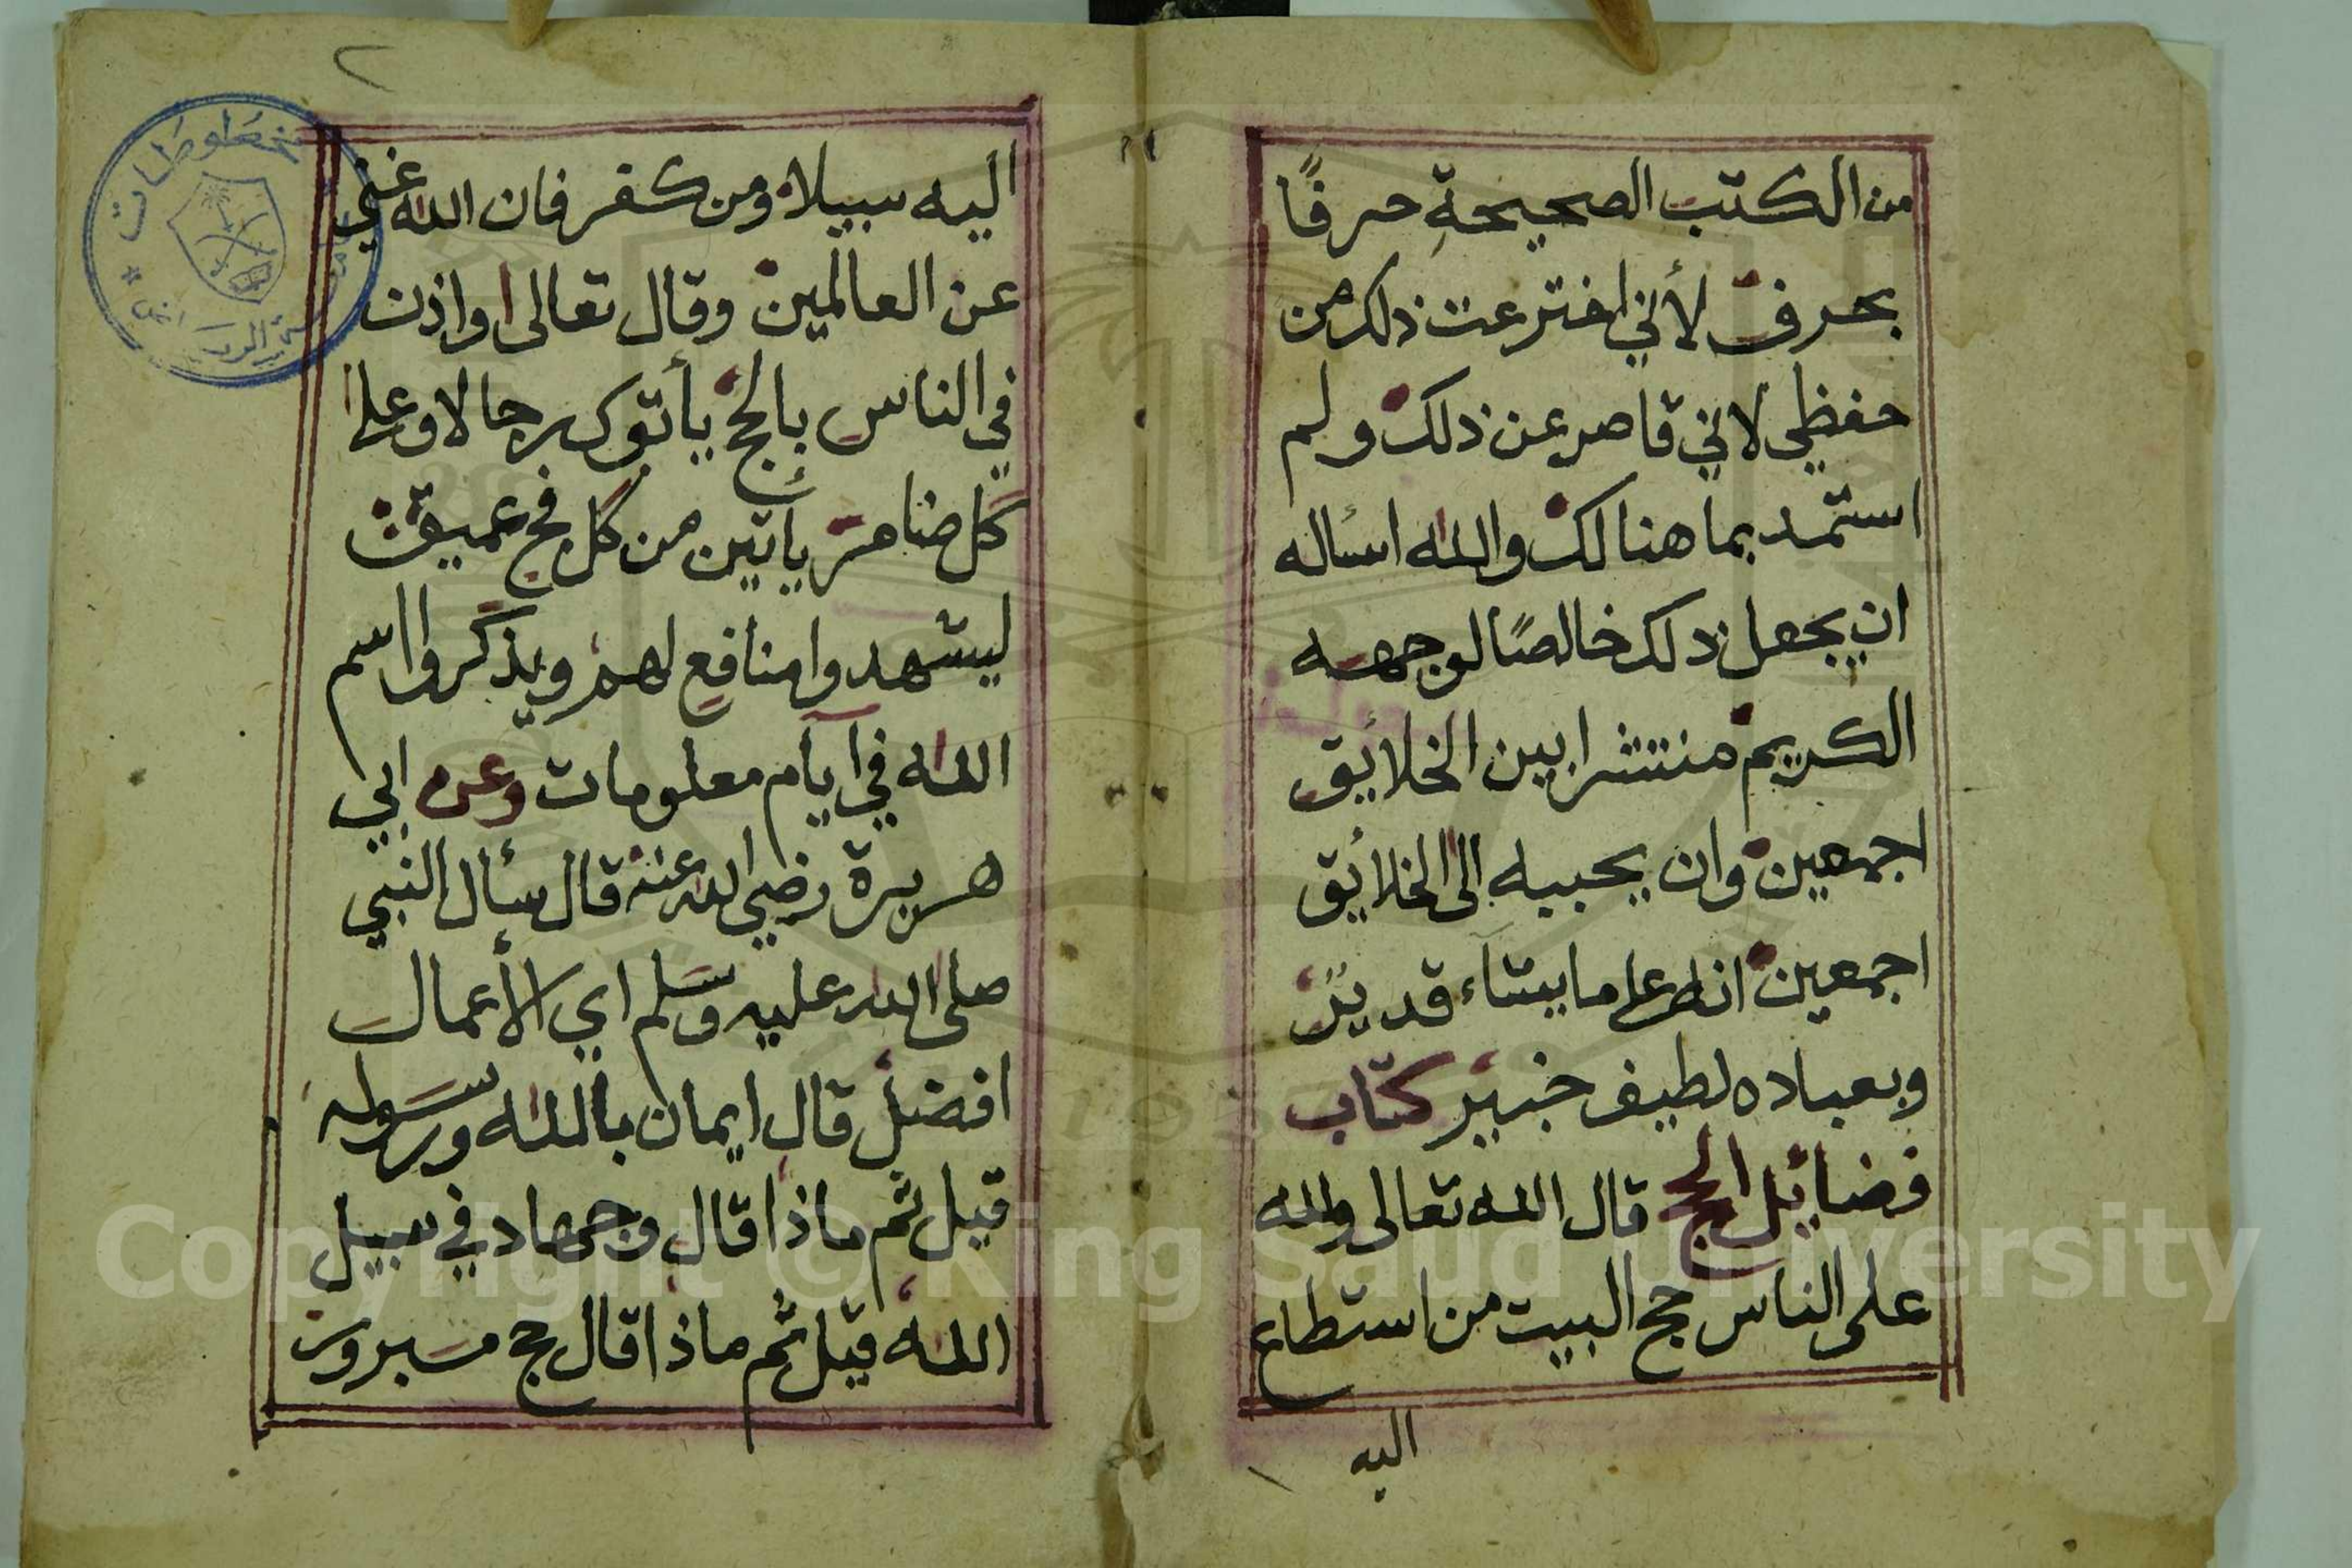 من الكتب الصحيحةِ حرفًا
بحرف لأني اخترعت ذلك من
حفظي لاني قاصر عن ذلك ولم
استمد بما هنالك والله اسأله
ان يجعل ذلك خالصًا لوجهه
الكريم منتشرا بين الخلائق
اجمعين وان يحببه الى الخلائق
اجمعين انه على ما يشاء قديرٌ
وبعباده لطيف خبير كتاب
فضايل الحج قال الله تعالى ولله
على الناس حج البيت من استطاع
اليه
٢
اليه سبيلا ومن كفر فان الله غني
عن العالمين وقال تعالى واذن
في الناس بالحج يأتوك رجالا وعلى
كل ضامر يأتين من كل فج عميق
ليشهدوا منافع لهم ويذكروا اسم
الله في آيام معلومات وعن ابي
هريرة رضي الله عنه قال سأل النبي
صلى الله عليه وسلم اي الأعمال
افضل قال ايمان بالله ورسوله
قيل ثم ماذا قال وجهاد في سبيل
الله قيل ثم ماذا قال حج مبرور
مخطوطات
Copyright © King Saud University